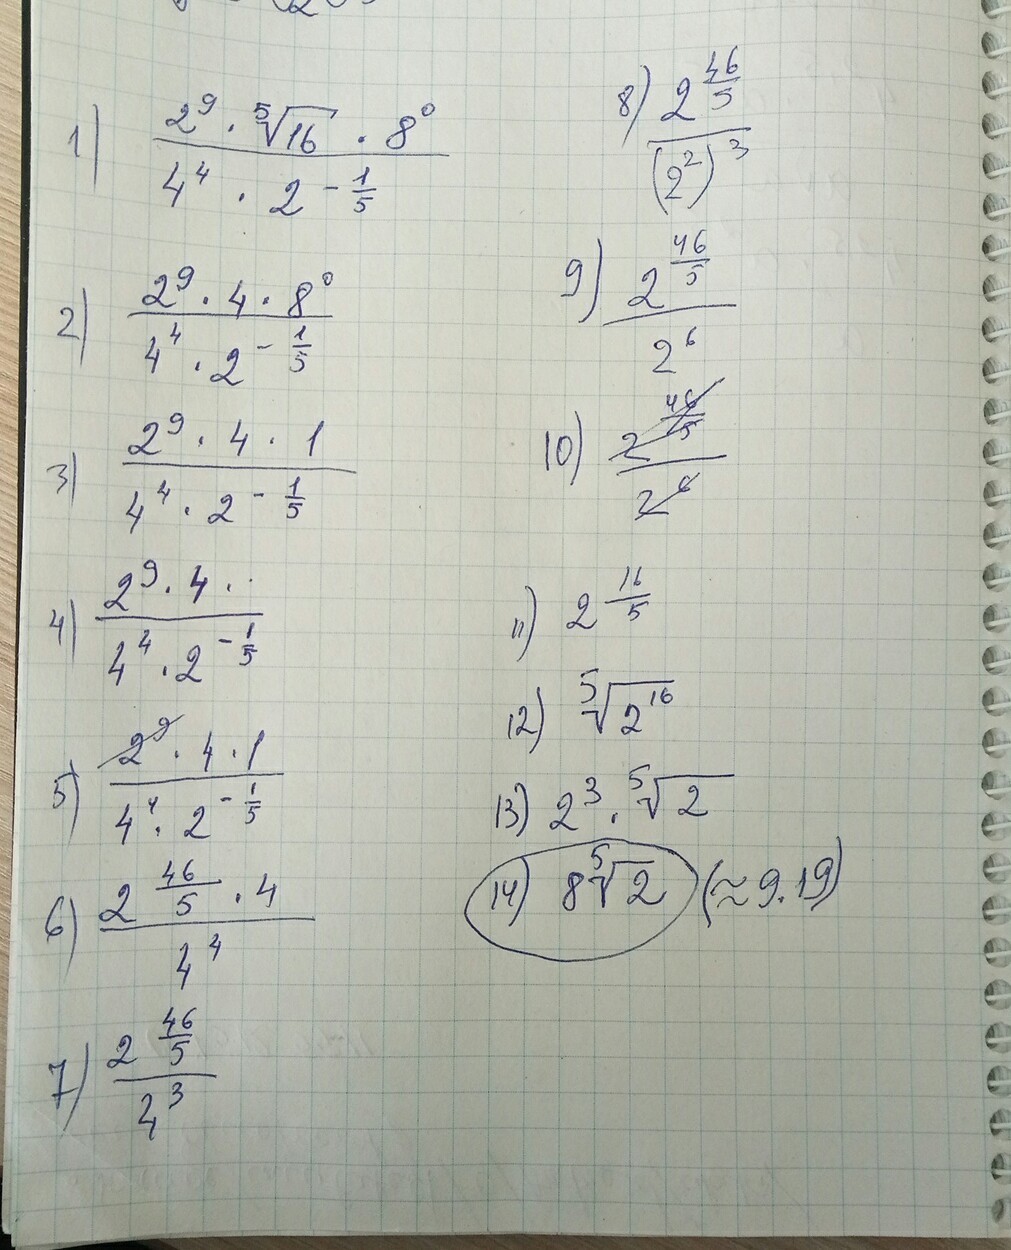 1) (2⁹ · ⁵√16 · 8⁰) / (4⁴ · 2^(-1/5))
2) (2⁹ · 4 · 8⁰) / (4⁴ · 2^(-1/5))
3) (2⁹ · 4 · 1) / (4⁴ · 2^(-1/5))
4) (2⁹ · 4 ·) / (4⁴ · 2^(-1/5))
5) (2⁹ · 4 · 1) / (4⁴ · 2^(-1/5))
6) (2^(46/5) · 4) / 4⁴
7) 2^(46/5) / 4³
8) 2^(46/5) / (2²)³
9) 2^(46/5) / 2⁶
10) 2^(46/5) / 2⁶
11) 2^(16/5)
12) ⁵√2¹⁶
13) 2³ · ⁵√2
14) 8⁵√2 (≈9.19)